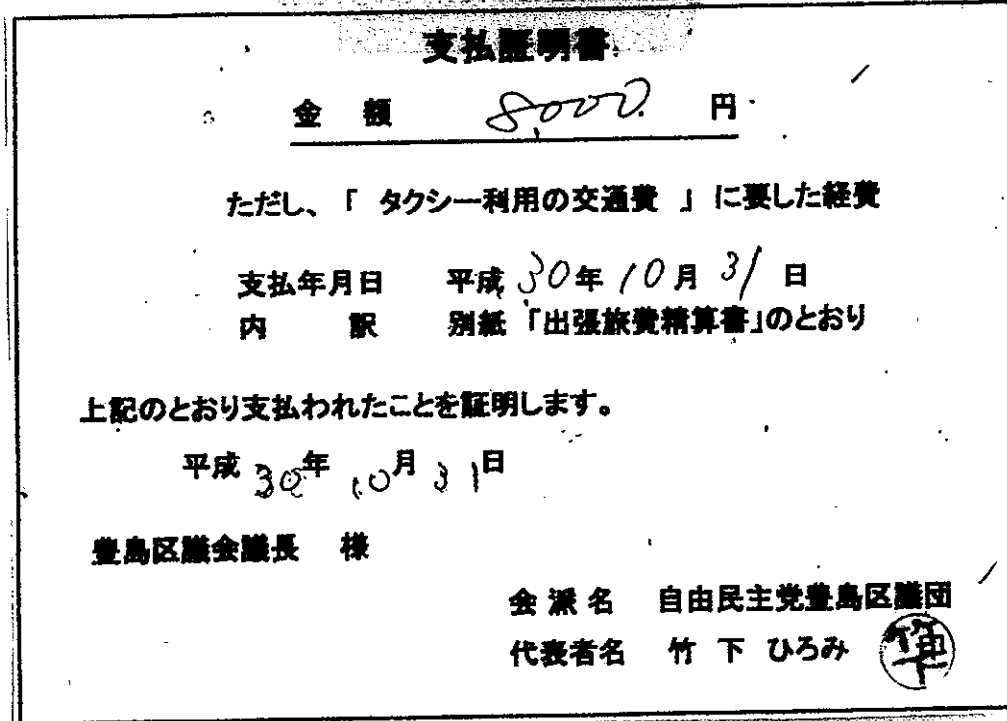 支払証明書
金 額 8,000 円
ただし、「 タクシー利用の交通費 」に要した経費
支払年月日 平成 30年 10月 31日
内 訳 別紙「出張旅費精算書」のとおり
上記のとおり支払われたことを証明します。
平成 30年 10月 31日
豊島区議会議長 様
会派名 自由民主党豊島区議団
代表者名 竹下 ひろみ